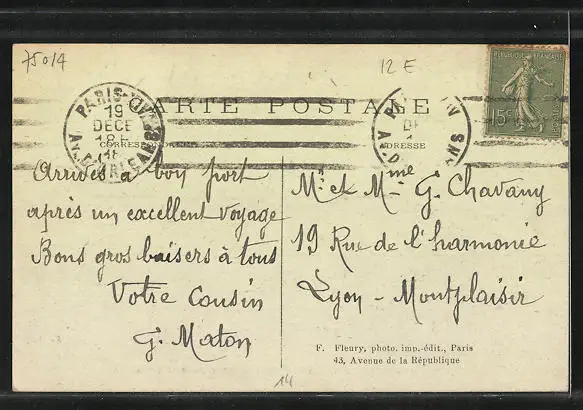 75014
12 E
RÉPUBLIQUE FRANÇAISE
15c
CARTE POSTALE
PARIS-XIV
19
DÉCE
AV. D'ORLEANS
CORRESP
ADRESSE
Arrivés à bon port
après un excellent voyage
Bons gros baisers à tous
Votre Cousin
G. Maton
Mr et Mme G. Chavany
19 Rue de l'harmonie
Lyon - Montplaisir
F. Fleury, photo. imp.-édit., Paris
43, Avenue de la République
14